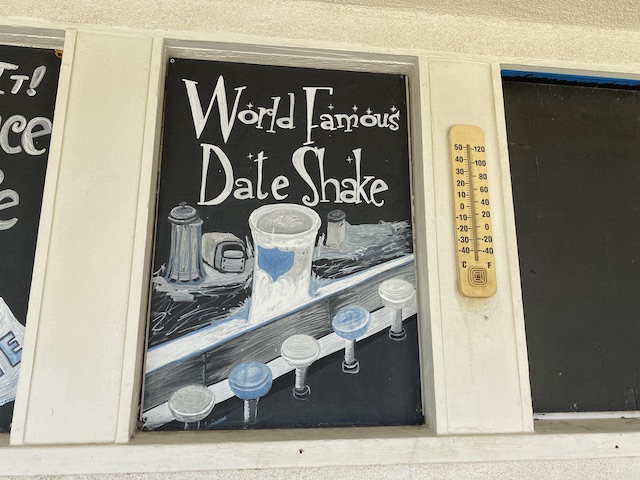 IT!
World Famous
Date Shake
50 120
40 100
30 80
20 60
10 40
0 20
-10 0
-20 -20
-40 -40
°C °F